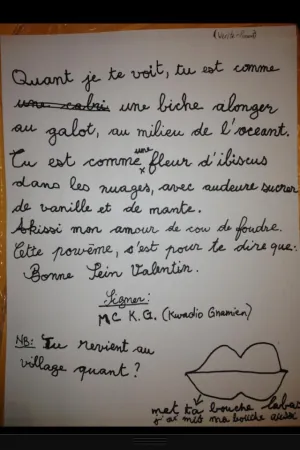 (Verité-himself)
Quant je te voit, tu est comme
une cabri une biche alonger
au galot, au milieu de l'oceant.
Tu est comme une fleur d'ibiscus
dans les nuages, avec audeure sucrer
de vanille et de mante.
Akissi mon amour de cou de foudre.
Cette pouvème, s'est pour te dire que:
Bonne Sein Valentin.
Signer:
MC K.G. (Kwadio Gnamien)
NB: Tu revient au
village quant?
met ta bouche labas
j'ai mis ma bouche aussi